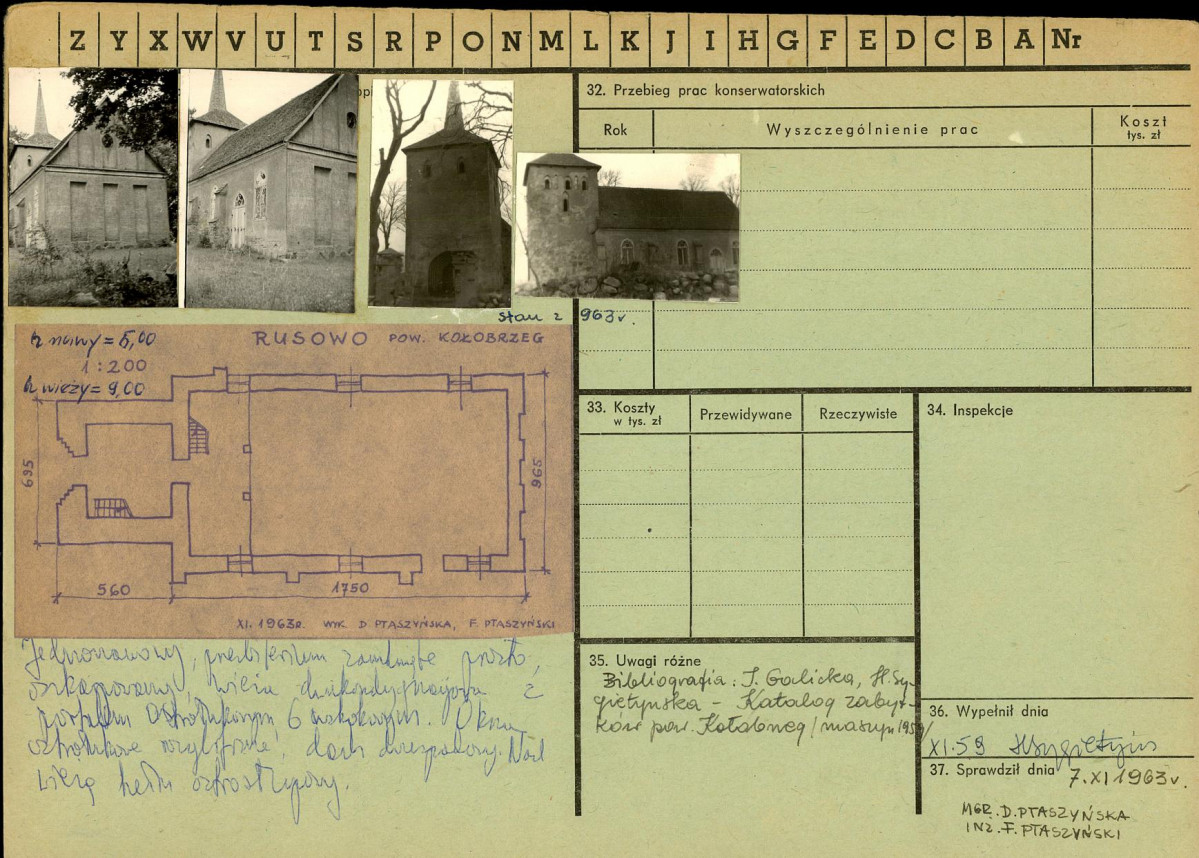 Z Y X W V U T S R P O N M L K J I H G F E D C B A Nr
opi
32. Przebieg prac konserwatorskich
Rok
Wyszczególnienie prac
Koszt
tys. zł
stan z 963r.
h nawy = 5,00
RUSOWO POW. KOŁOBRZEG
1:200
h wieży = 9,00
695
965
560
1750
XI. 1963R. WYK. D. PTASZYŃSKA, F. PTASZYŃSKI
33. Koszty
w tys. zł
Przewidywane
Rzeczywiste
34. Inspekcje
Jednonawowy, prezbiterium zamknięte prosto,
oszkarpowany, wieża z
portalem ostrołukowym 6 uskokowym. Okna
ostrołukowe, dach dwuspadowy. Nad
wieżą hełm ostrosłupowy.
35. Uwagi różne
Bibliografia: I. Galicka, H. Sy-
gietyńska – Katalog zabyt-
ków pow. Kołobrzeg /maszyn 1959/
36. Wypełnił dnia
XI.59 HSygietyńs
37. Sprawdził dnia
7.XI 1963r.
MGR. D. PTASZYŃSKA
INŻ. F. PTASZYŃSKI